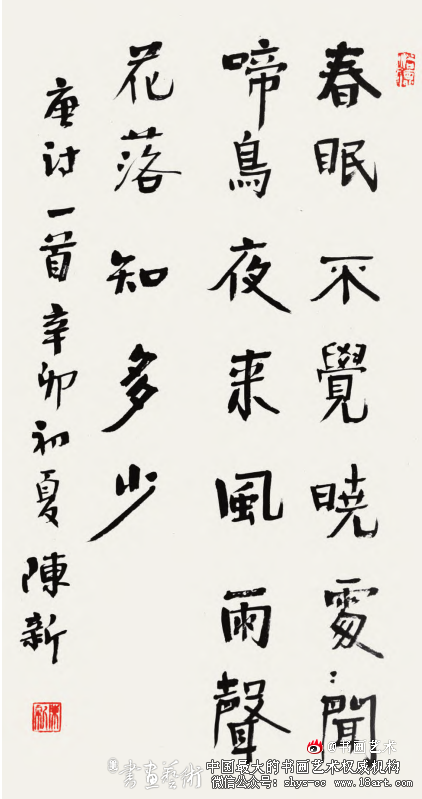 春眠不覺曉處:聞
啼鳥夜来風雨聲
花落知多少
唐诗一首辛卯初夏陳新
書畫藝術
@书画艺术
中国最大的书画艺术权威机构
微信公众号: shys-cc www.18art.com